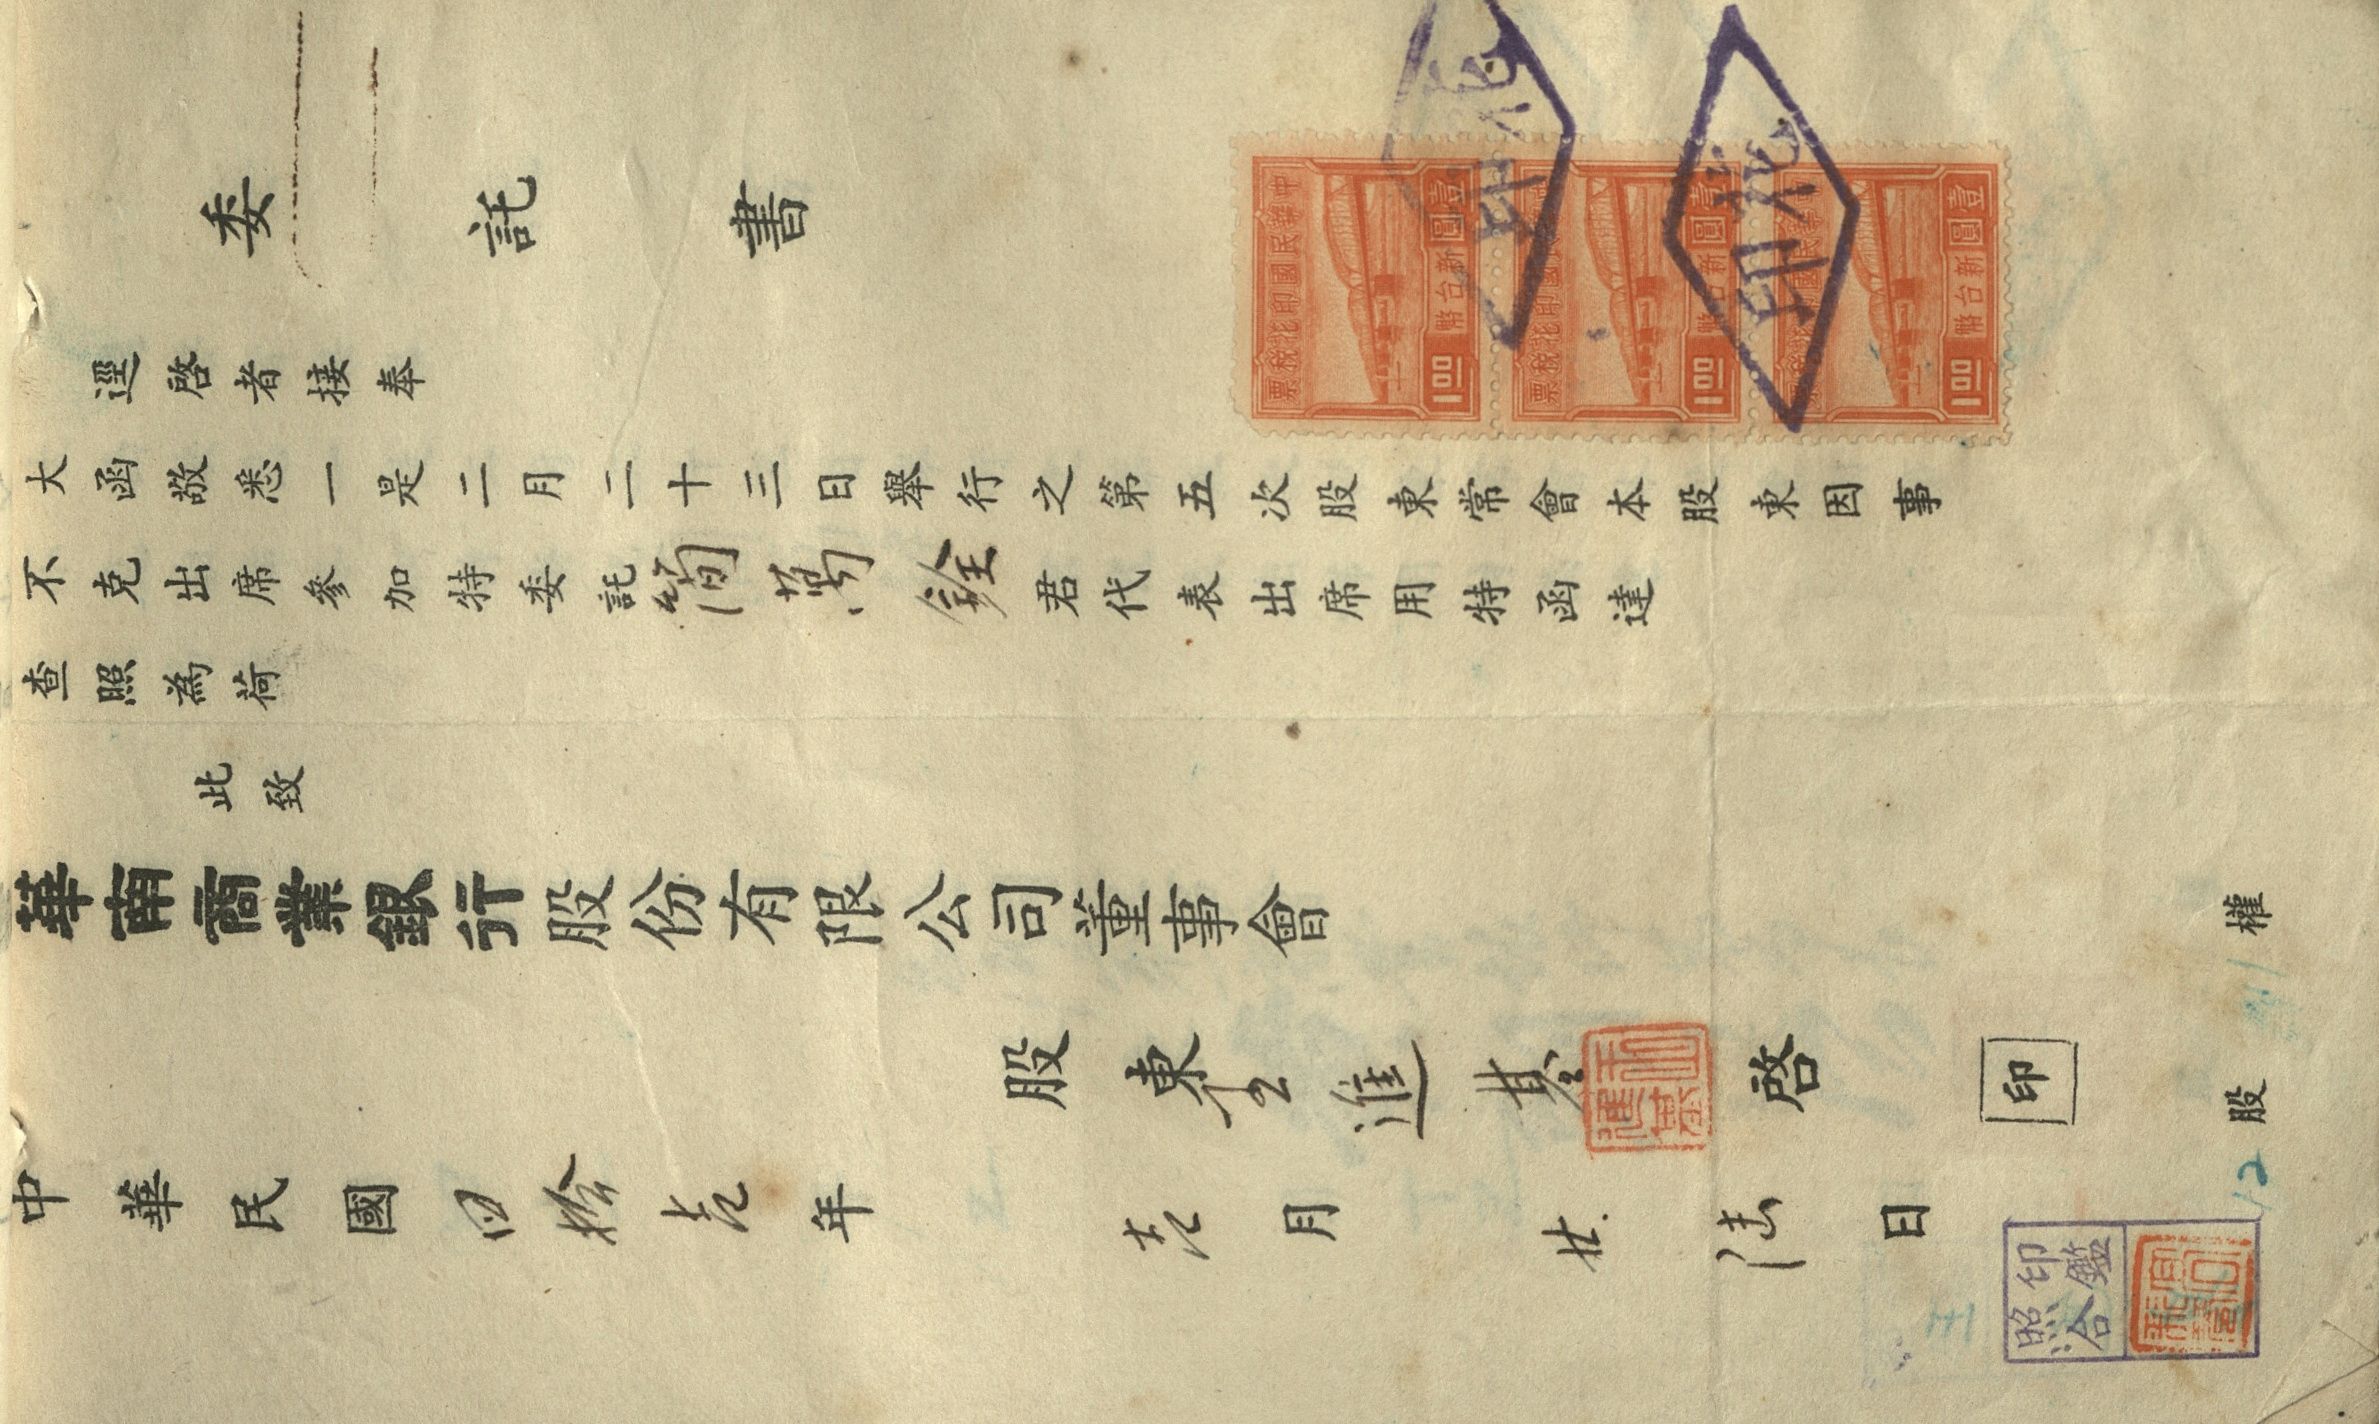 委託書
逕啓者接奉
大函敬悉一是二月二十三日舉行之第五次股東常會本股東因事
不克出席參加特委託簡萬銓君代表出席用特函達
查照為荷
此致
華南商業銀行股份有限公司董事會
股東王進基啓
印
中華民國四拾壱年壱月廿陸日
42股
權
中華民國印花稅票
新台幣壹圓
1.00
中華民國印花稅票
新台幣壹圓
1.00
中華民國印花稅票
新台幣壹圓
1.00
印鑑
照合